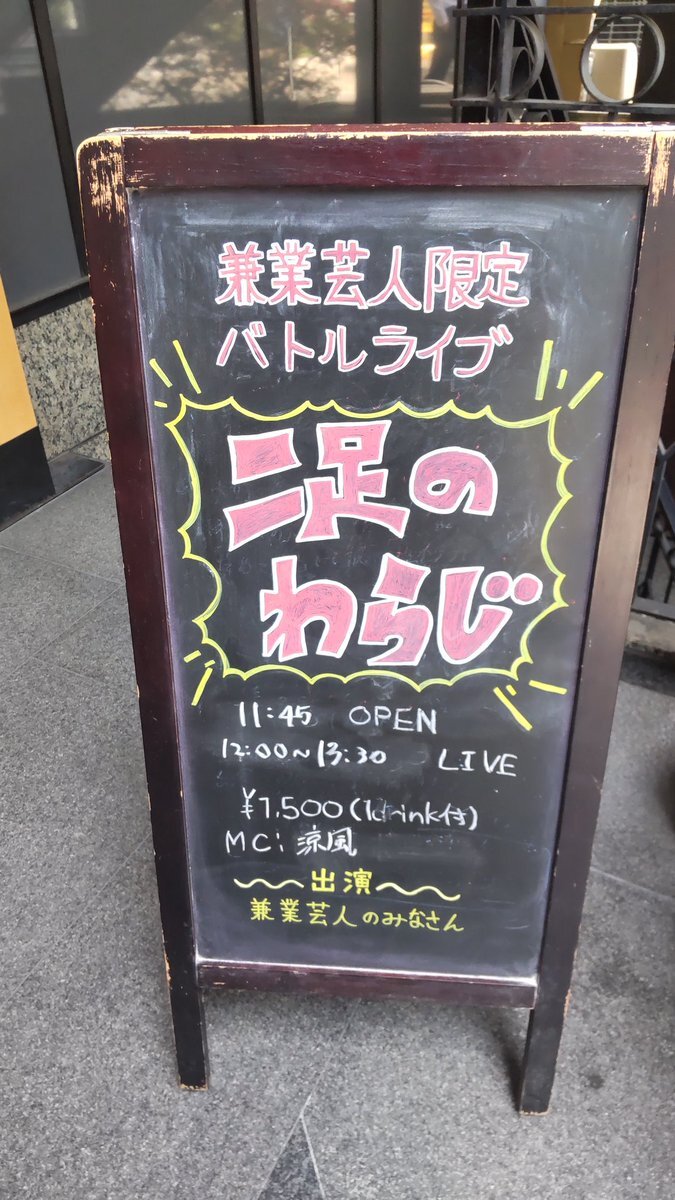 兼業芸人限定
バトルライブ
二足の
わらじ
11:45 OPEN
12:00~13:30 LIVE
¥1,500(1drink付き)
MC:涼風
出演
兼業芸人のみなさん